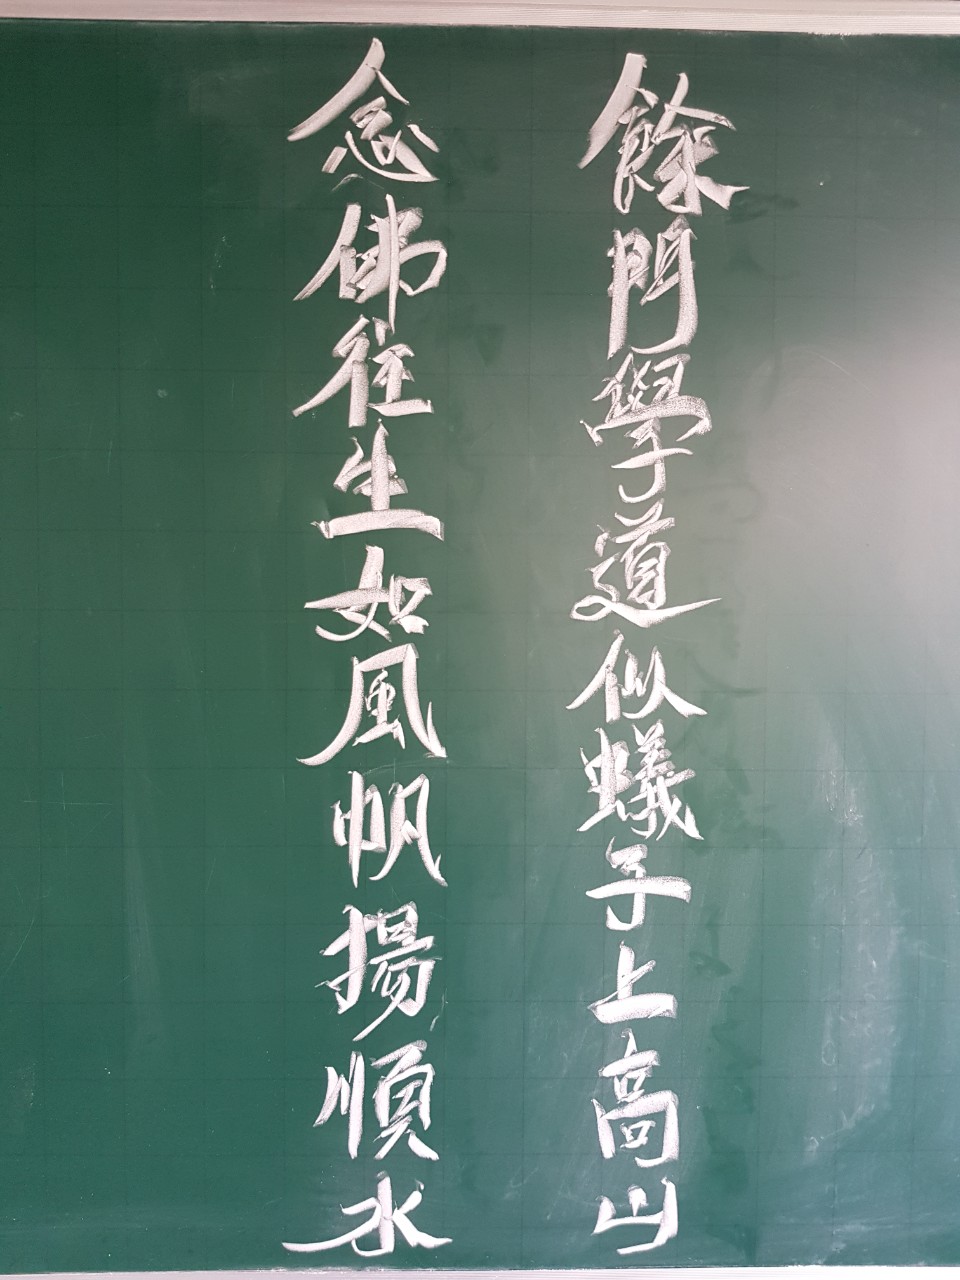 餘門學道似蟻子上高山
念佛往生如風帆揚順水